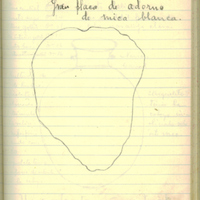 Gran placa de adorno
de mica blanca.